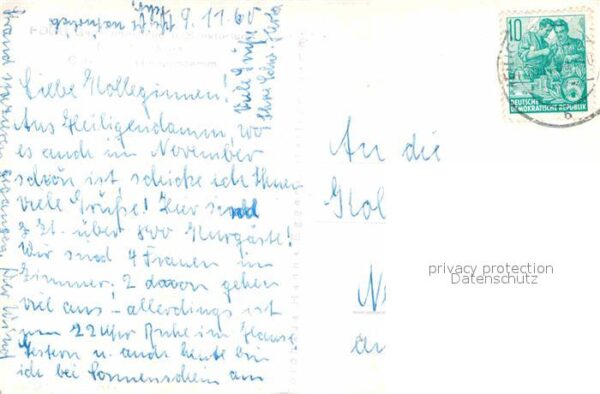 9.11.60
Liebe Kolleginnen!
Aus Heiligendamm, wo
es auch im November
schön ist, schicke ich Ihnen
viele Grüße! Hier sind
z. Zt. über 800 Kurgäste!
Wir sind 4 Frauen im
Zimmer; 2 davon gehen
viel aus! - allerdings ist
um 22 Uhr Ruhe im Hause.
Gestern u. auch heute bin
ich bei Sonnenschein am
Strand
Viele Grüße
Ihre
An die
Kol
N
an
10
DEUTSCHE
DEMOKRATISCHE REPUBLIK
privacy protection
Datenschutz